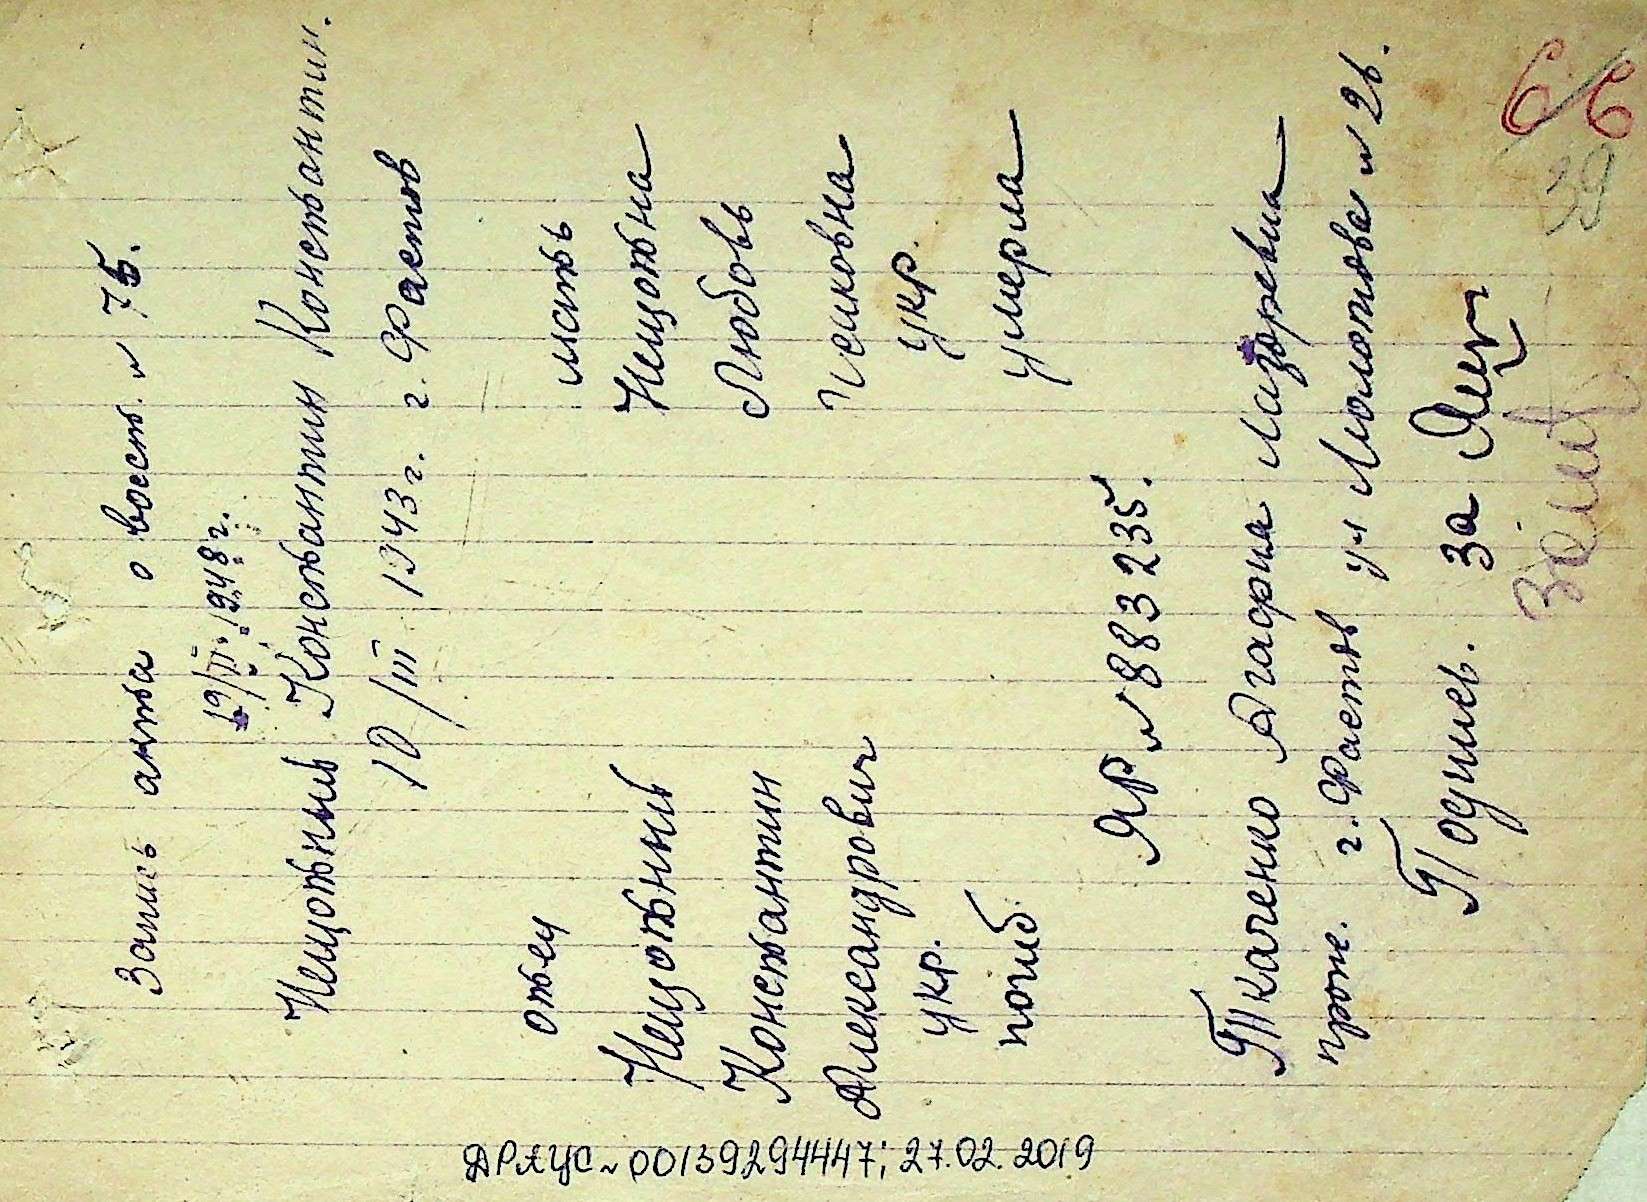 Запись акта о восст. № 75.
19/III. 1948 г.
Нещотный Константин Константин.
10/III 1943 г. г. Фастов
отец мать
Нещотный Нещотна
Константин Любовь
Александрович
укр. укр.
погиб умерла
ЯР № 883235.
Ткаченко Агафия Лазоревна
прож. г. Фастов ул Молотова № 26.
Подпись. За
6/6
39
ДРАЦС № 00139294447; 27.02.2019